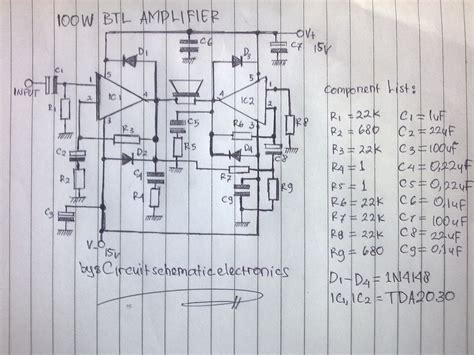 100W BTL AMPLIFIER
INPUT
C1
R1
1
2
3
4
5
IC1
D1
C6
D3
C7
V+
15V
IC2
5
4
3
1
2
R8
R3
D2
C5
R5
R6
D4
C8
C2
R2
C4
R4
R7
C9
R9
C3
V-
15V
by: Circuitschematicelectronics
Component List:
R1 = 22K C1 = 1uF
R2 = 680 C2 = 22uF
R3 = 22K C3 = 100uF
R4 = 1 C4 = 0,22uF
R5 = 1 C5 = 0,22uF
R6 = 22K C6 = 0,1uF
R7 = 22K C7 = 100uF
R8 = 22K C8 = 22uF
R9 = 680 C9 = 0,1uF
D1-D4 = 1N4148
IC1, IC2 = TDA2030